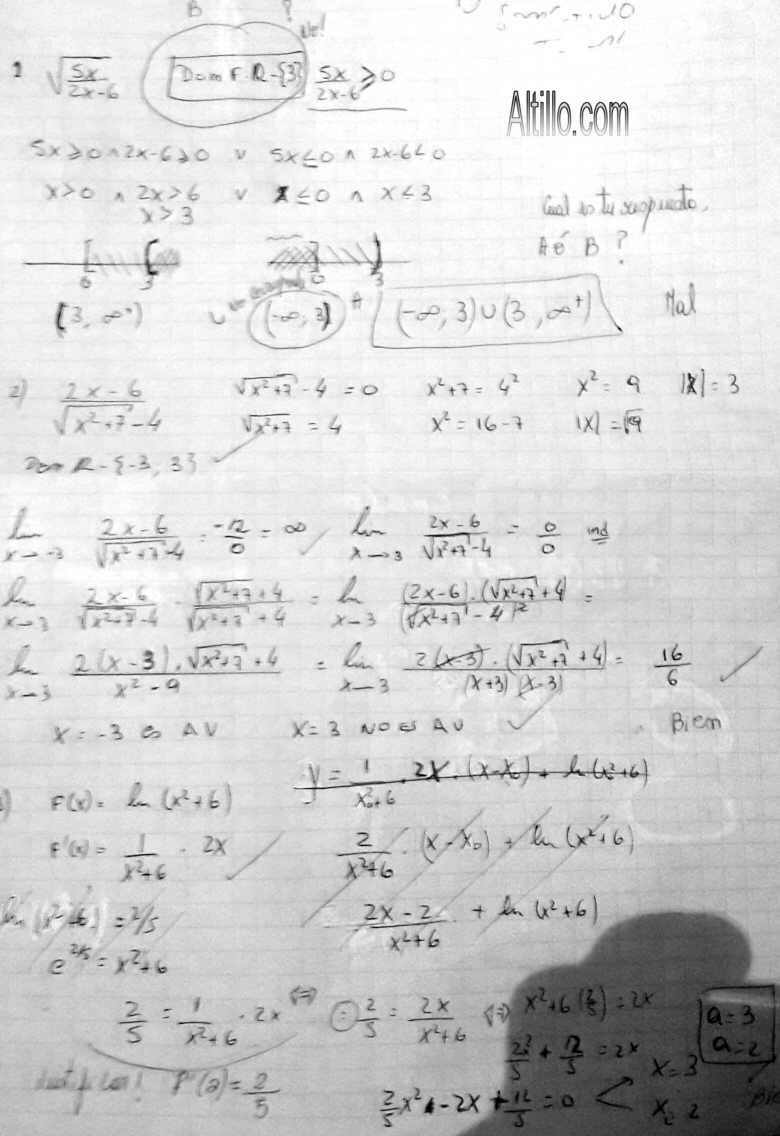 B ?
No!
1 √(5x/(2x-6)) Dom F: R-{3} 5x/(2x-6) ≥ 0
Altillo.com
5x≥0 ∧ 2x-6≥0 ∨ 5x≤0 ∧ 2x-6<0
x>0 ∧ 2x>6 ∨ x≤0 ∧ x<3
x>3
Cual es tu respuesta,
A ó B ?
0 3 0 3
[3, ∞⁺) ∪ (-∞, 3) A (-∞, 3) ∪ (3, ∞⁺) Mal
2) (2x-6)/(√(x²+7)-4) √(x²+7) - 4 = 0 x²+7 = 4² x² = 9 |x| = 3
√(x²+7) = 4 x² = 16-7 |x| = √9
Dom R-{-3, 3}
lim x→-3 (2x-6)/(√(x²+7)-4) = -12/0 = ∞ lim x→3 (2x-6)/(√(x²+7)-4) = 0/0 ind
lim x→3 (2x-6)/(√(x²+7)-4) · (√(x²+7)+4)/(√(x²+7)+4) = lim x→3 (2x-6)·(√(x²+7)+4)/(√(x²+7)-4)² =
lim x→3 2(x-3)·√(x²+7)+4/(x²-9) = lim x→3 2(x-3)·(√(x²+7)+4)/((x+3)(x-3)) = 16/6
x = -3 es AV x = 3 NO ES AV Bien
y = 1/(x₀²+6) · 2x · (x-x₀) + ln(x²+6)
F(x) = ln(x²+6)
F'(x) = 1/(x²+6) · 2x 2/(x²+6) · (x-x₀) + ln(x²+6)
ln(x²+6) = 2/5 (2x-2)/(x²+6) + ln(x²+6)
e^(2/5) = x²+6
2/5 = 1/(x²+6) · 2x ⇔ = 2/5 = 2x/(x²+6) ⇔ x²+6(2/5) = 2x
a=3
a=2
2x²/5 + 12/5 = 2x
F'(a) = 2/5
2/5x² - 2x + 12/5 = 0 x = 3
x₂ 2